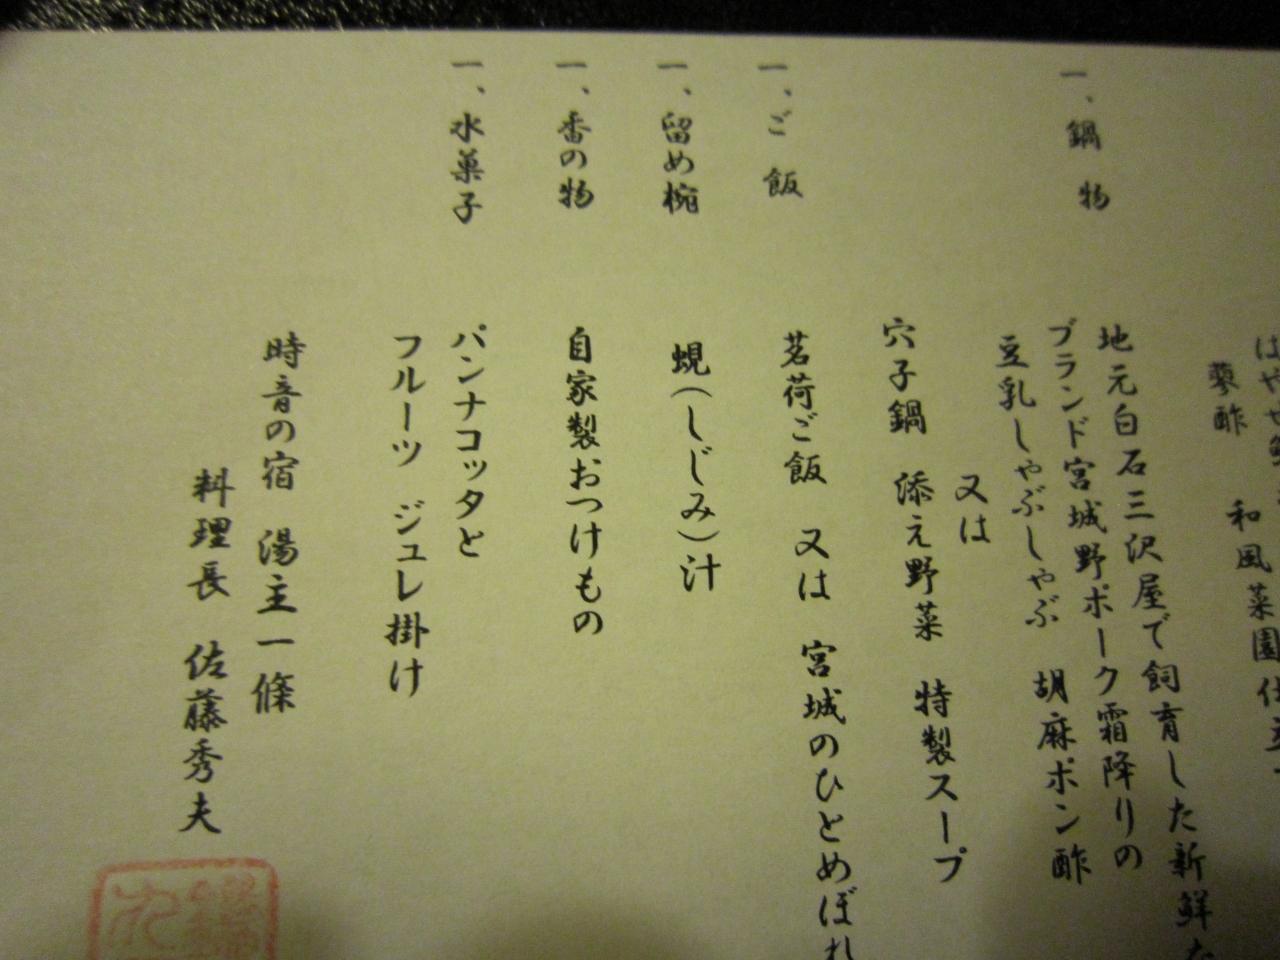 和風菜園仕立て
蓼酢
一、鍋物
地元白石三沢屋で飼育した新鮮な
ブランド宮城野ポーク霜降りの
豆乳しゃぶしゃぶ 胡麻ポン酢
又は
穴子鍋 添え野菜 特製スープ
一、ご飯
茗荷ご飯 又は 宮城のひとめぼれ
一、留め椀
蜆(しじみ)汁
一、香の物
自家製おつけもの
一、水菓子
パンナコッタと
フルーツ ジュレ掛け
時音の宿 湯主一條
料理長 佐藤秀夫